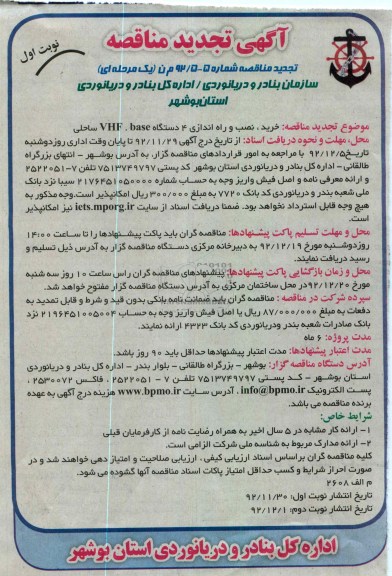 آگهی تجدید مناقصه
نوبت اول
تجدید مناقصه شماره ۵-۹۲/۵۰ م ن (یک مرحله ای)
سازمان بنادر و دریانوردی / اداره کل بنادر و دریانوردی
استان بوشهر
موضوع تجدید مناقصه: خرید، نصب و راه اندازی ۴ دستگاه VHF . base ساحلی
محل، مهلت و نحوه دریافت اسناد: از تاریخ درج آگهی ۹۲/۱۱/۲۹ تا پایان وقت اداری روز دوشنبه
تاریخ ۹۲/۱۲/۵ با مراجعه به امور قراردادهای مناقصه گزار، به آدرس بوشهر - انتهای بزرگراه
طالقانی - اداره کل بنادر و دریانوردی استان بوشهر کد پستی ۷۵۱۳۷۴۹۷۹۷ تلفن ۷-۲۵۲۲۰۵۱
و ارائه معرفی نامه و اصل فیش واریز وجه به حساب شماره ۲۱۷۶۴۵۱۰۵۰۰۰۰ سیبا نزد بانک
ملی شعبه بندر و دریانوردی کد بانک ۷۷۲۰ به مبلغ ۳۰۰/۰۰۰ ریال امکانپذیر است. وجه مذکور به
هیچ وجه قابل استرداد نخواهد بود. ضمنا دریافت اسناد از سایت iets.mporg.ir نیز امکانپذیر
است.
محل و مهلت تسلیم پاکت پیشنهادها: مناقصه گران باید پاکت پیشنهادها را تا ساعت ۱۴:۰۰
روز دوشنبه مورخ ۹۲/۱۲/۱۹ به دبیرخانه مرکزی دستگاه مناقصه گزار به آدرس ذیل تسلیم و
رسید دریافت نمایند.
محل و زمان بازگشایی پاکت پیشنهادها: پیشنهادهای مناقصه گران راس ساعت ۱۰ روز سه شنبه
مورخ ۹۲/۱۲/۲۰ در محل ساختمان مرکزی به آدرس دستگاه مناقصه گزار مفتوح خواهد شد.
سپرده شرکت در مناقصه: مناقصه گران باید ضمانت نامه بانکی بدون قید و شرط و قابل تمدید به
دفعات به مبلغ ۸۷/۰۰۰/۰۰۰ ریال یا اصل فیش واریز وجه به حساب ۲۱۹۶۴۵۱۰۰۵۰۰۴ نزد
بانک صادرات شعبه بندر و دریانوردی کد بانک ۴۳۲۳ ارائه نمایند.
مدت پروژه: ۶ ماه
مدت اعتبار پیشنهادها: مدت اعتبار پیشنهادها حداقل باید ۹۰ روز باشد.
آدرس دستگاه مناقصه گزار: بوشهر - بزرگراه طالقانی - بلوار بندر - اداره کل بنادر و دریانوردی
استان بوشهر - کد پستی ۷۵۱۳۷۴۹۷۹۷ تلفن ۷ - ۲۵۲۲۰۵۱ ، فاکس ۲۵۳۰۰۷۲ ،
پست الکترونیک info@bpmo.ir . آدرس سایت www.bpmo.ir هزینه درج آگهی به عهده
برنده مناقصه می باشد.
شرایط خاص:
۱- ارائه کار مشابه در ۵ سال اخیر به همراه رضایت نامه از کارفرمایان قبلی
۲- ارائه مدارک مربوط به شناسه ملی شرکت الزامی است.
کلیه مناقصه گران براساس اسناد ارزیابی کیفی، ارزیابی صلاحیت و امتیاز دهی خواهند شد و در
صورت احراز شرایط و کسب حداقل امتیاز پاکات اسناد مناقصه آنها گشوده می شود.
م الف ۲۶۰۸
تاریخ انتشار نوبت اول: ۹۲/۱۱/۳۰
تاریخ انتشار نوبت دوم: ۹۲/۱۲/۱
اداره کل بنادر و دریانوردی استان بوشهر